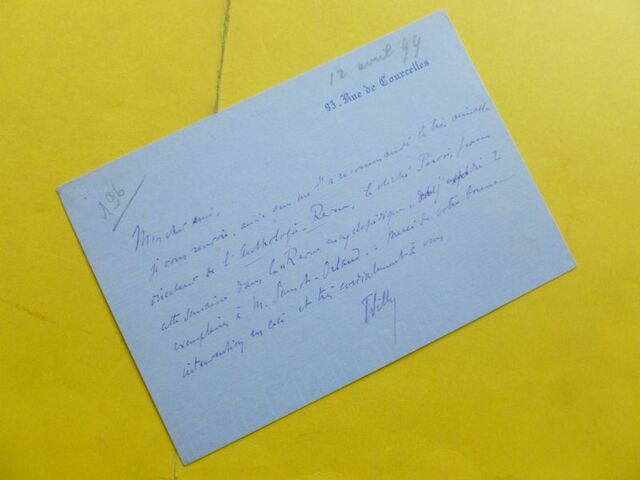 12 avril 99
93. Rue de Courcelles
196
Mon cher ami,
Je vous renvoie, ainsi que me l'a recommandé le très aimable
directeur de l'Anthologie-Revue, le cliché Perosi, paru
cette semaine dans la "Revue encyclopédique" j'expédie 2
exemplaires à M. Sansot-Orland. Merci de votre bonne
intervention en ceci et très cordialement à vous
Willy